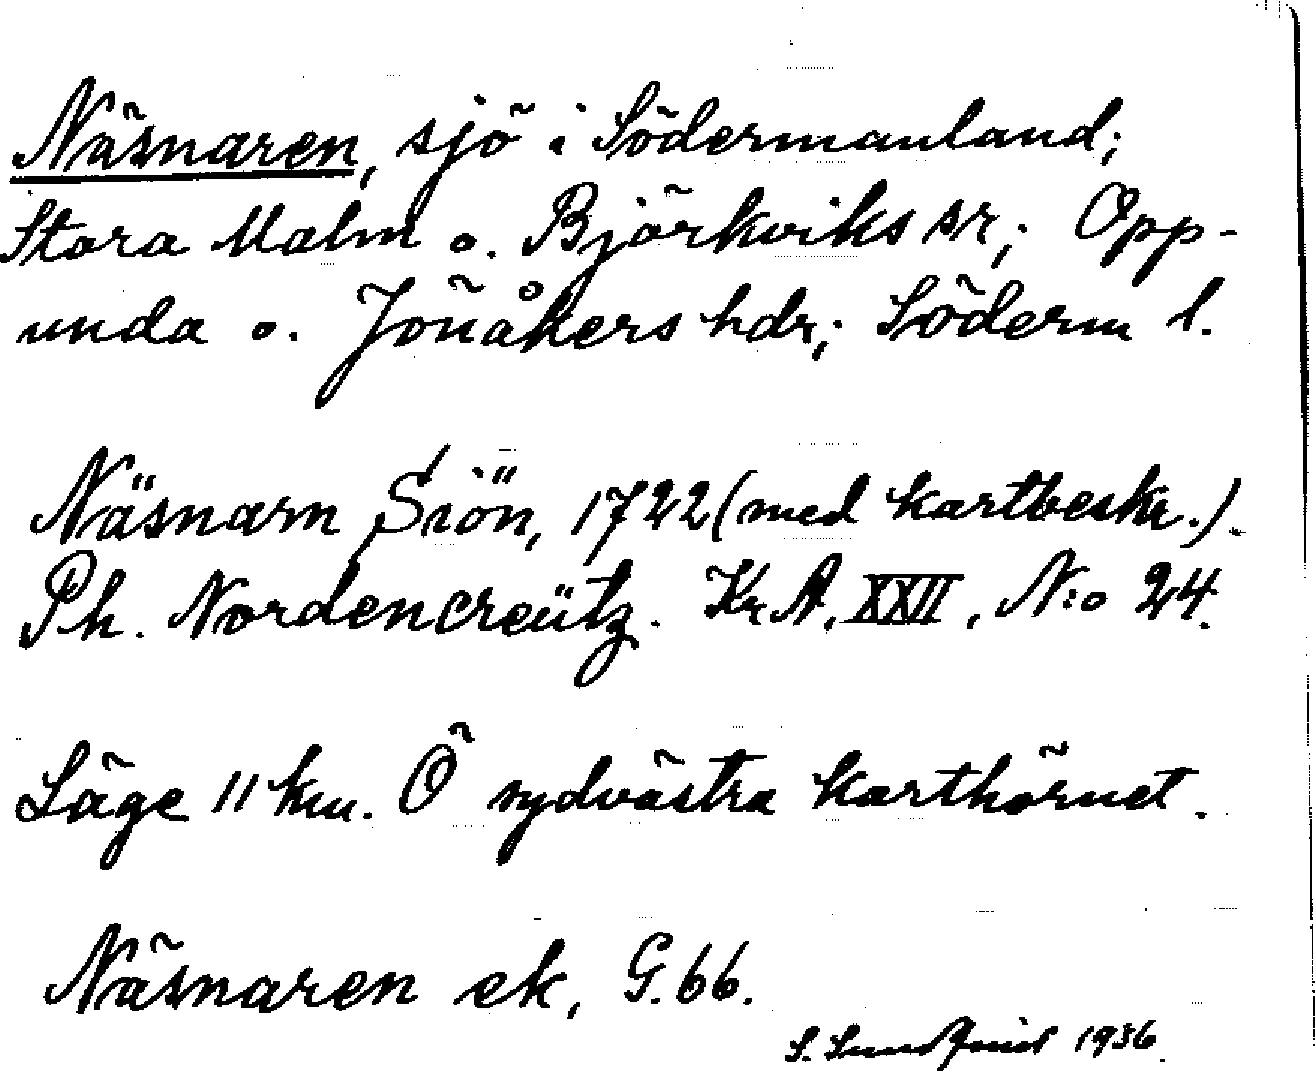 Näsnaren, sjö i Södermanland;
Stora Malm o. Björkviks sr; Opp-
unda o. Jönåkers hdr; Söderm l.
Näsnarn Siön, 1722 (med kartbeskr.).
Ph. Nordencreütz. Kr.A. XXII, N:o 24.
Läge 11 km. Ö sydvästra karthörnet.
Näsnaren ek, G. 66.
S. Lundquist 1936